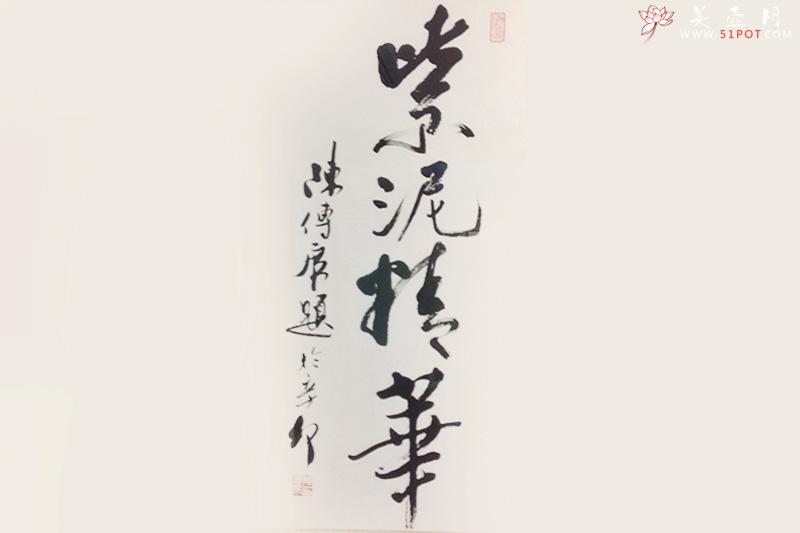 紫泥精華
陳傳席題於辛卯
美壶网
WWW.51POT.COM